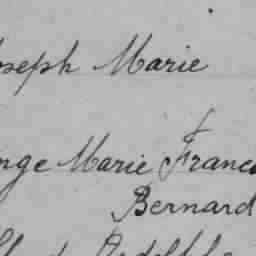 oseph Marie
nge Marie Franc
Bernard